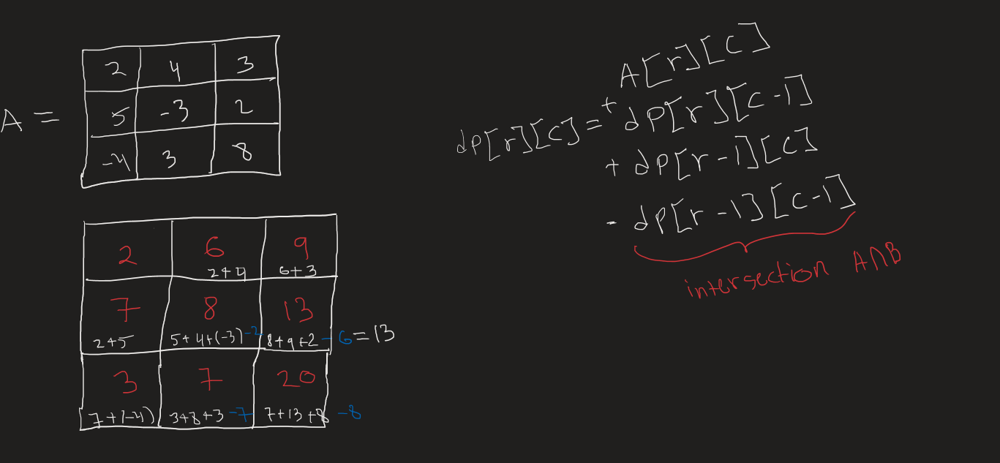 A =
2 4 3
5 -3 2
-4 3 8
2 6 9
2+4 6+3
7 8 13
2+5 5+4+(-3) -2 8+9+2 - 6 = 13
3 7 20
7+(-4) 3+8+3 -7 7+13+8 -8
A[r][c]
dp[r][c] = + dp[r][c-1]
+ dp[r-1][c]
- dp[r-1][c-1]
intersection A∩B